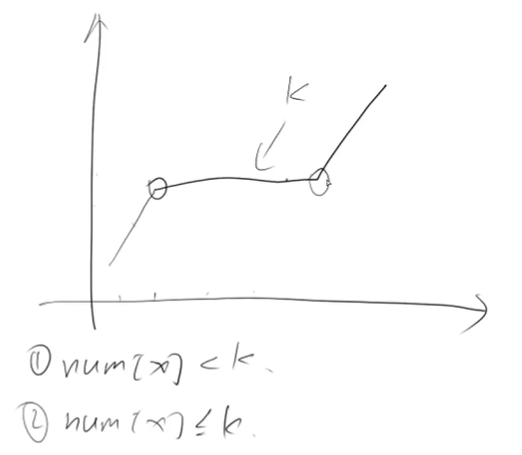 k
① num[x] < k.
② num[x] ≤ k.